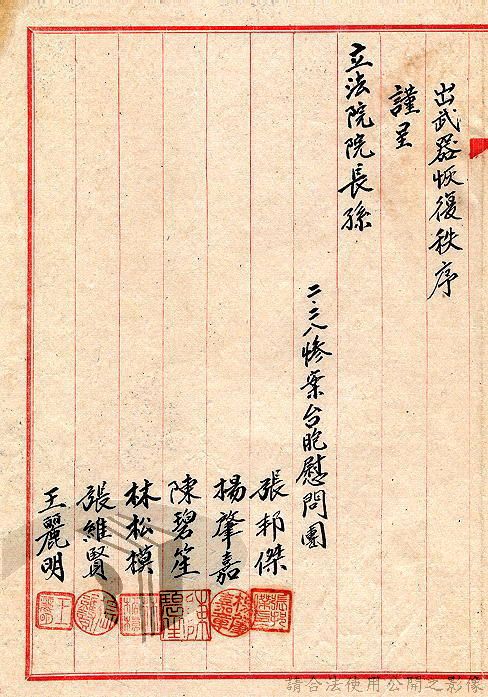 出武器恢復秩序
謹呈
立法院院長孫
二·二八慘案台胞慰問團
張邦傑
楊肇嘉
陳碧笙
林松模
張維賢
王麗明
請合法使用公開之影像